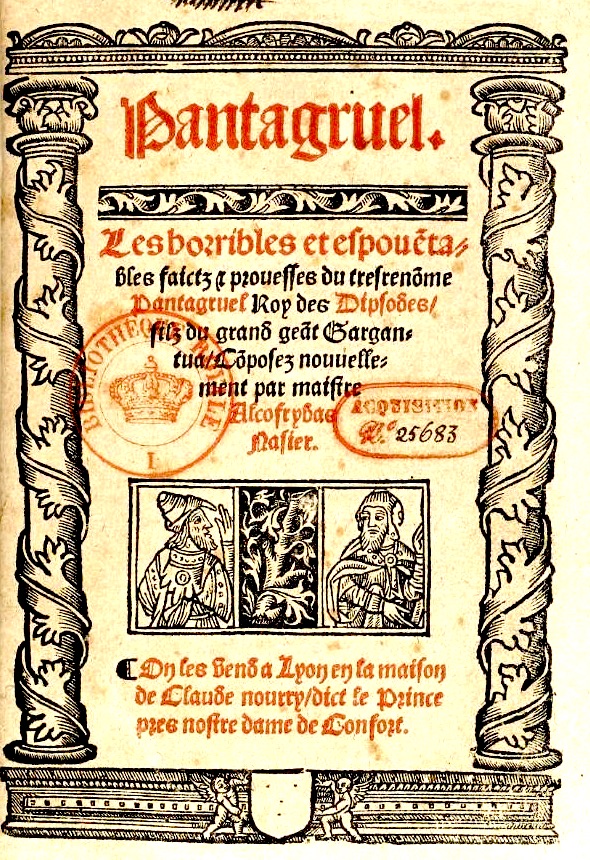 Pantagruel.
Les horribles et espouẽta⸗
bles faictz ⁊ prouesses du tresrenõme
Pantagruel Roy des Dipsodes/
filz du grand geãt Gargan⸗
tua/ Cõposez nouuelle⸗
ment par maistre
Alcofrybas
Nasier.
BIBLIOTHEQUE ROYALE
I.
ACQUISITION
N.º 25683
¶On les vend a Lyon en la maison
de Claude nourry/dict le Prince
pres nostre dame de Confort.